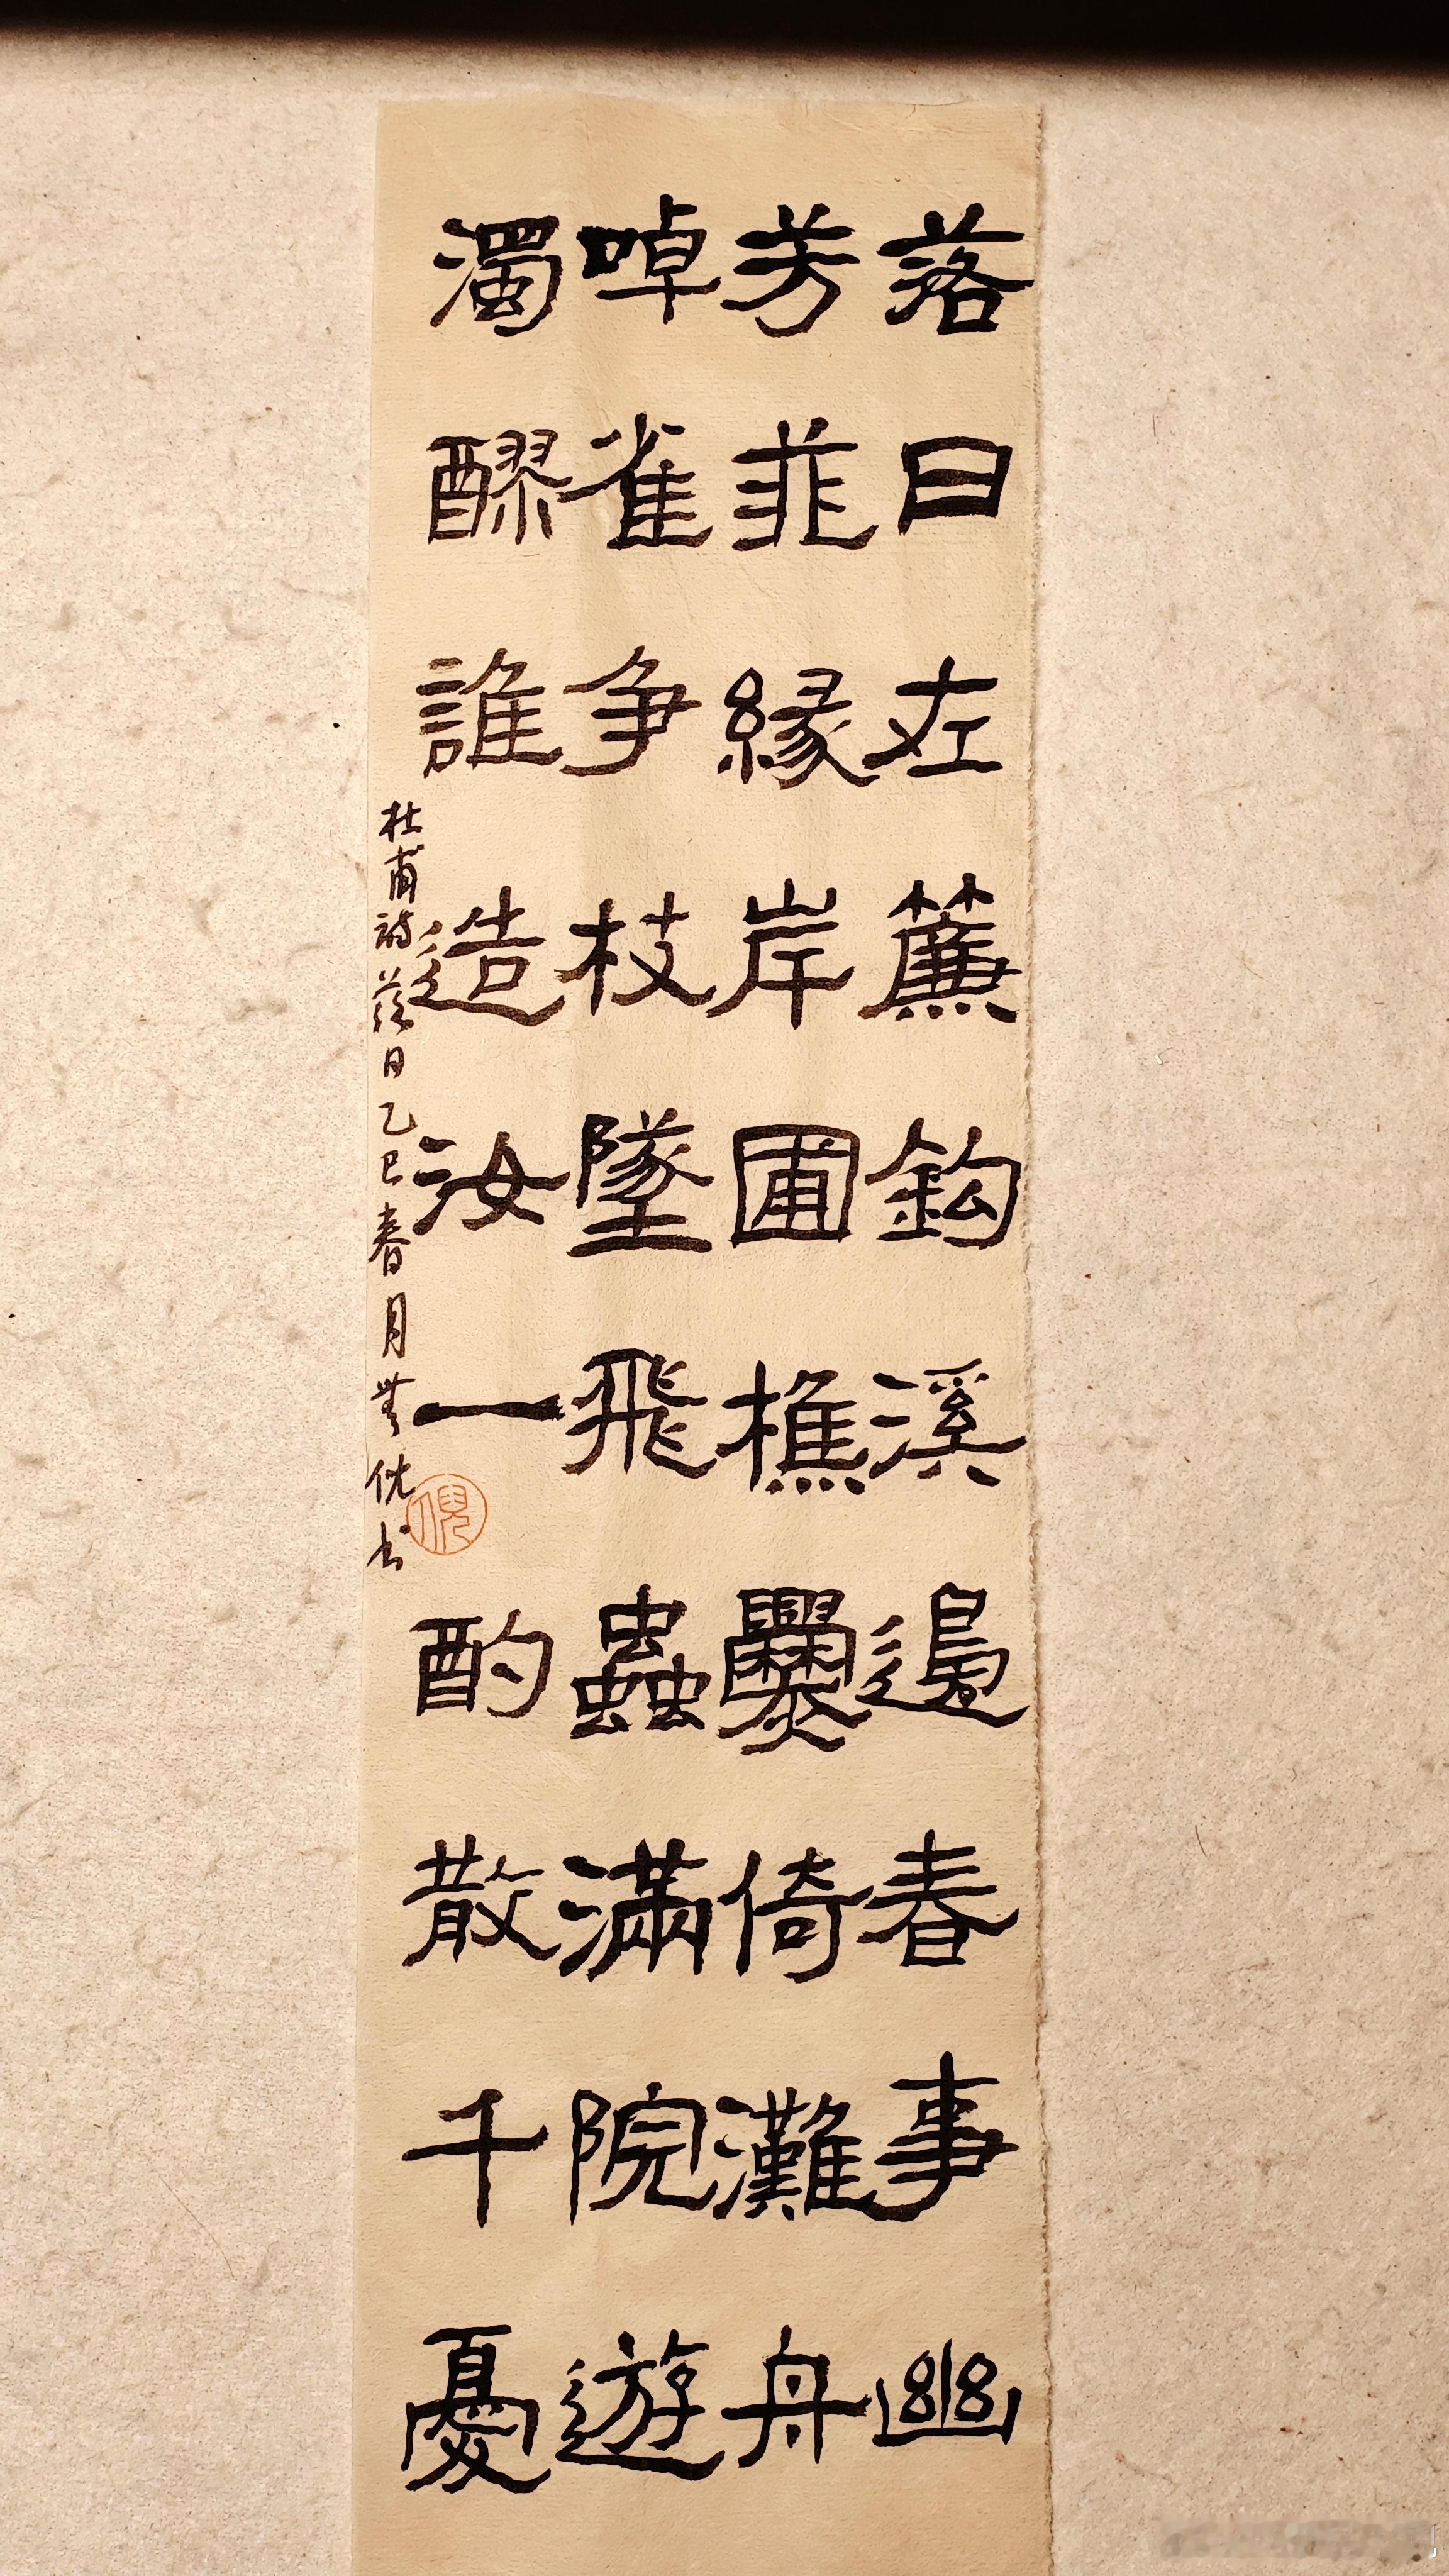 落日在簾鈎溪邊春事幽
芳菲緣岸圃樵爨倚灘舟
啅雀爭枝墜飛蟲滿院遊
濁醪誰造汝一酌散千憂
杜甫詩落日乙巳春月無忧书
倪